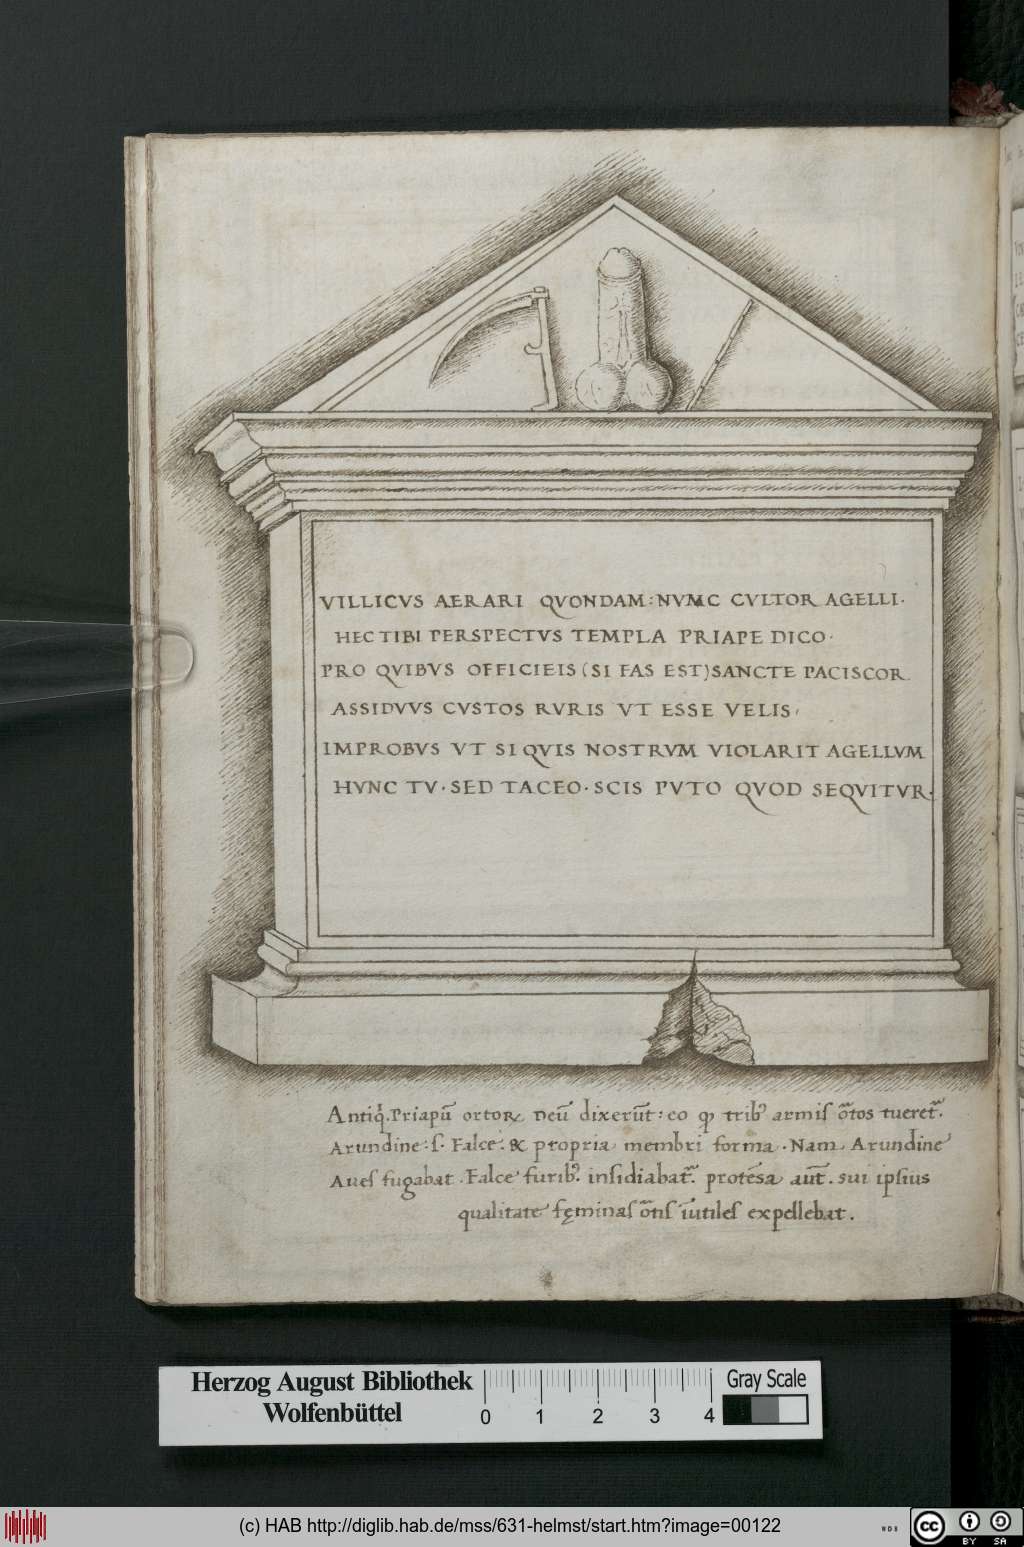 VILLICVS AERARI QVONDAM : NVMC CVLTOR AGELLI ·
HEC TIBI PERSPECTVS TEMPLA PRIAPE DICO ·
PRO QVIBVS OFFICIEIS (SI FAS EST) SANCTE PACISCOR
ASSIDVVS CVSTOS RVRIS VT ESSE VELIS ,
IMPROBVS VT SI QVIS NOSTRVM VIOLARIT AGELLVM
HVNC TV · SED TACEO · SCIS PVTO QVOD SEQVITVR ·
Antiq̃. Priapũ ortoꝝ deũ dixerũt : eo ꝙ trib9 armis õtos tueret᷑.
Arundine : s · Falce : & propria membri forma · Nam Arundine
Aues fugabat · Falce furib9. insidiabat᷑. protẽsa aũt. sui ipsius
qualitate fęminas õns ĩutiles expellebat .
Herzog August Bibliothek
Wolfenbüttel
0 1 2 3 4
Gray Scale
(c) HAB http://diglib.hab.de/mss/631-helmst/start.htm?image=00122
WDB
cc BY SA